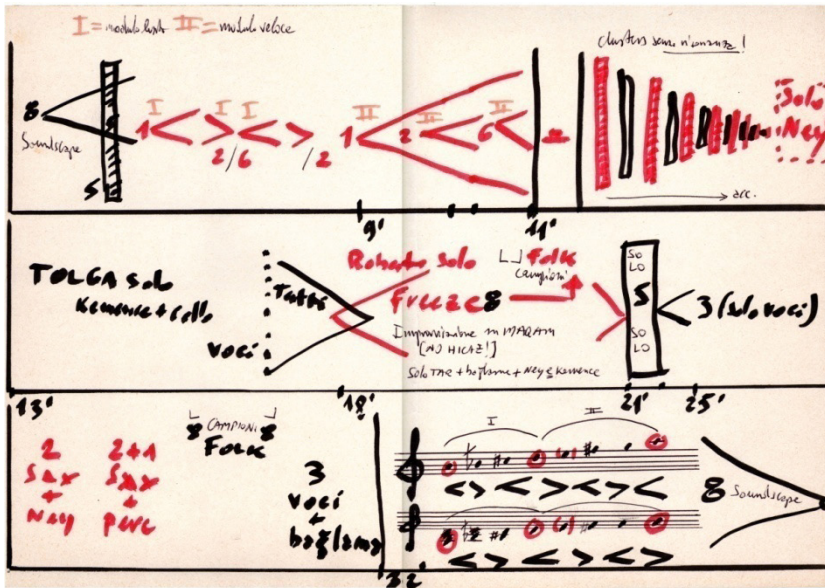 I = modulo lento II = modulo veloce
clusters senza risonanza!
8
Soundscape
5
I I I II II II
1 2/6 /2 1 2 6
acc.
Solo
Ney
9' 11'
TOLGA Solo
Kemence + cello
voci
Tutti
Roberto Solo
Freeze 8
Improvvisazione in MAQAM
[NO HICAZ!]
Solo TAR + bağlama + Ney e Kemence
Folk
campioni
SO
LO
5
SO
LO
3 (solo voci)
13' 18' 21' 25'
2
Sax
+
Ney
2+1
Sax
+
perc
8 CAMPIONI 8
FOLK
3
voci
+
bağlama
I II
8 Soundscape
32'